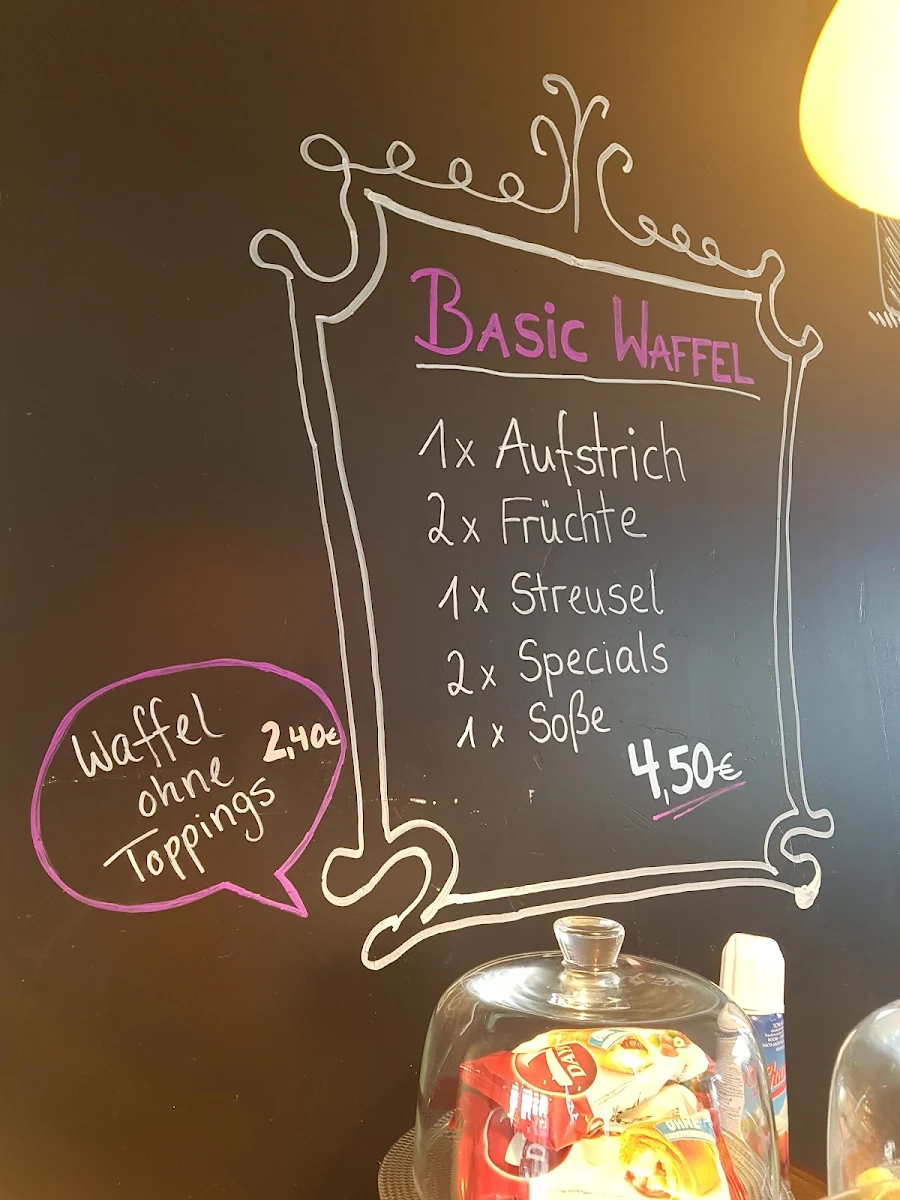 BASIC WAFFEL
1x Aufstrich
2x Früchte
1x Streusel
2x Specials
1x Soße
4,50€
Waffel
2,40€
ohne
Toppings
DAY
OHNE